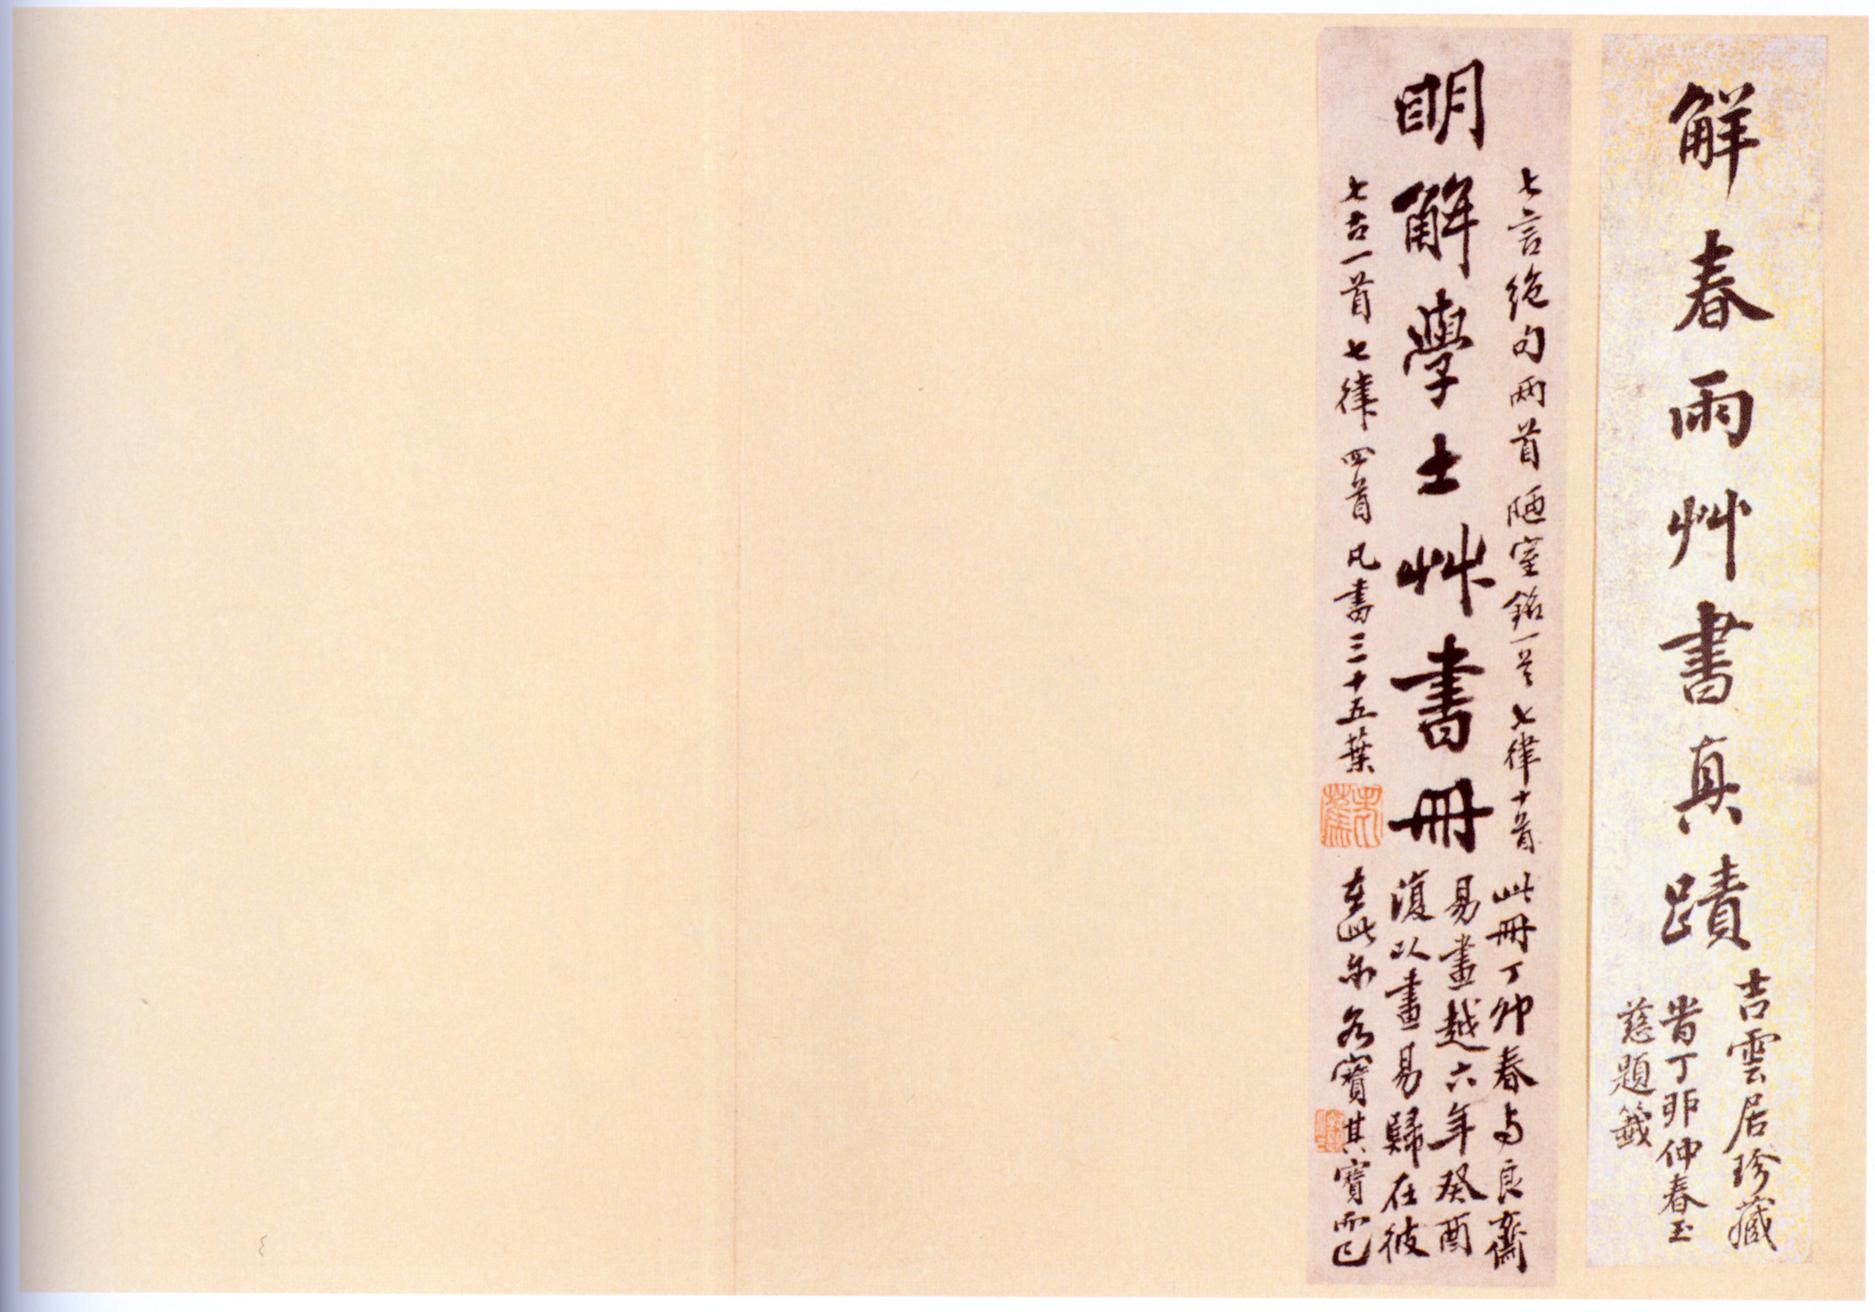 解春雨艸書真蹟
吉雲居珍藏
旹丁卯仲春玉
慈題籤
七言絶句兩首 陋室銘一首 七律十首
明解學士艸書冊
七古一首 七律四首 凡書三十五葉
此冊丁卯春与良齋
易畫越六年癸酉
復以畫易歸在彼
在此尔各寶其寶而已